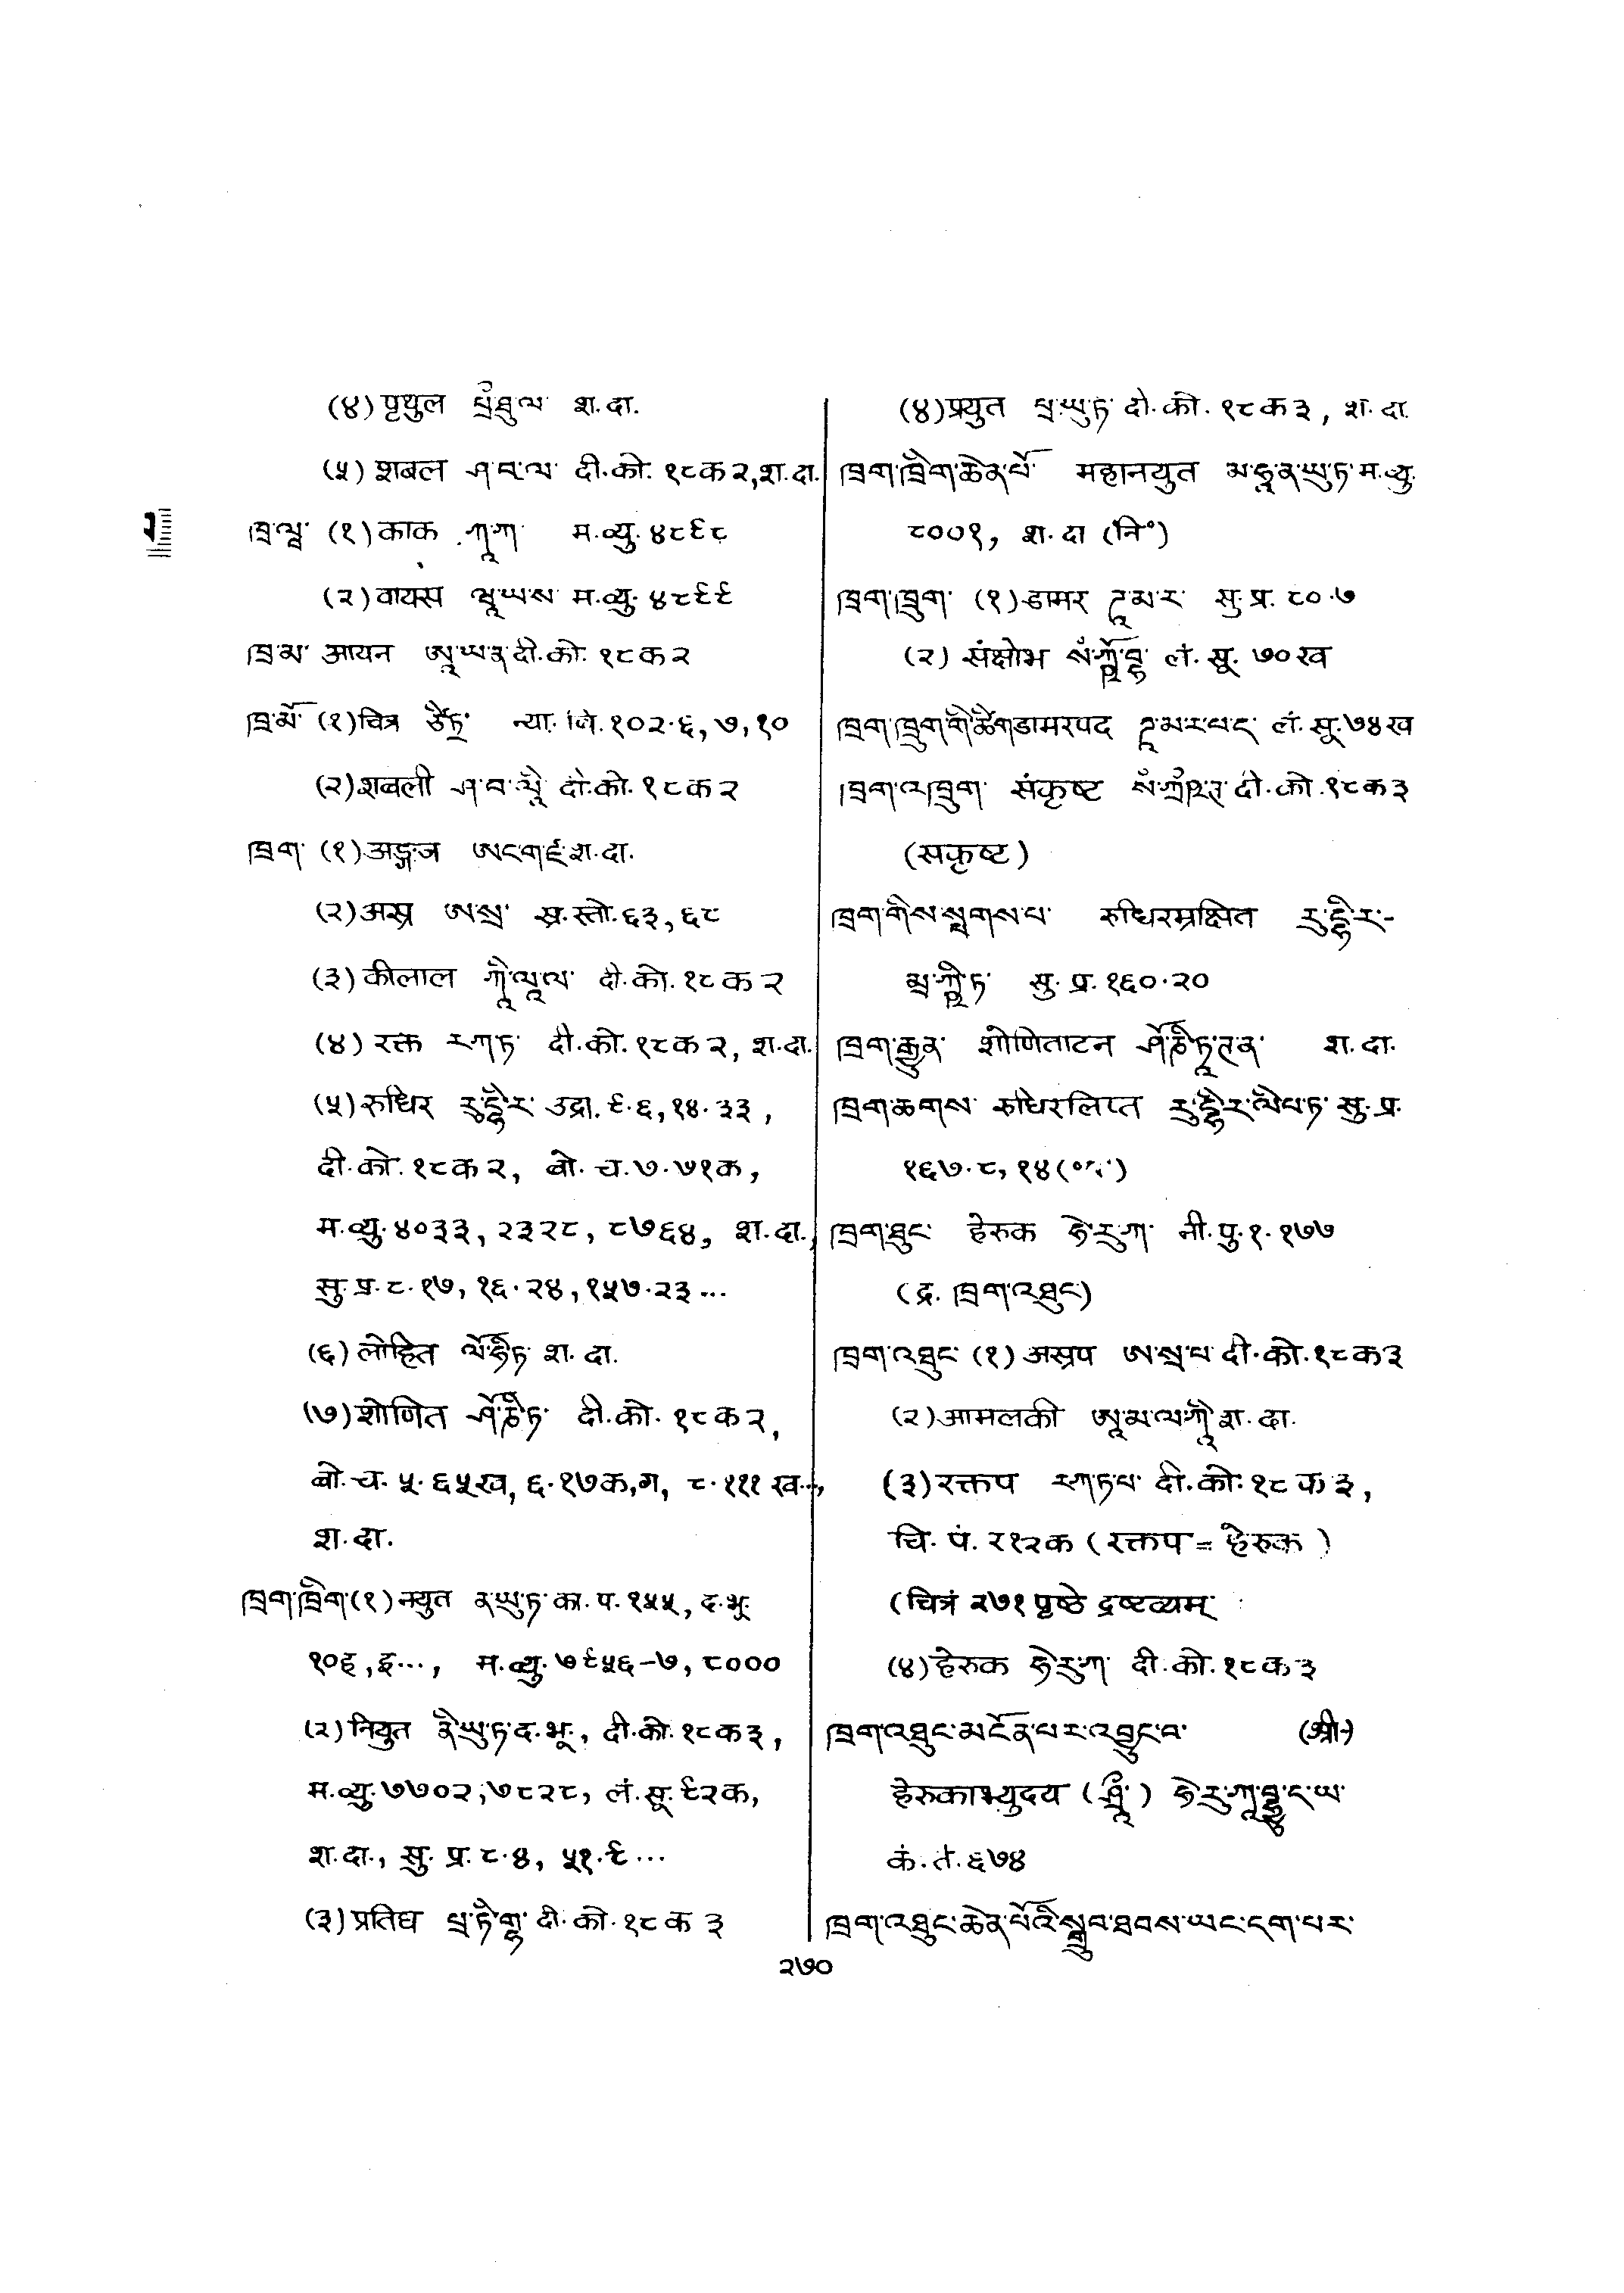 (४) पृथुल པྲྀ་ཐུ་ལ་ श.दा.
(५) शबल ཤ་བ་ལ་ दी.को. १८क२,श.दा.
ཁྲ་ལྭ་ (१) काक ཀཱ་ཀ་ म.व्यु.४८९८
(२) वायस ཝཱ་ཡ་ས་ म.व्यु.४८९९
ཁྲ་མ་ आयन ཨཱ་ཡ་ན་ दी.को. १८क२
ཁྲ་མོ་ (१) चित्र ཙི་ཏྲ་ न्या. वि.१०२.६,७,१०
(२) शबली ཤ་བ་ལཱི་ दी.को.१८क२
ཁྲག་ (१) अङ्गज ཨང་ག་ཛ་ श.दा.
(२) अस्र ཨ་སྲ་ स्र.स्तो.६३,६८
(३) कीलाल ཀཱི་ལཱ་ལ་ दी.को.१८क२
(४) रक्त རཀ་ཏ་ दी.को.१८क२, श.दा.
(५) रुधिर རུ་དྷི་ར་ उद्रा.९.६,१४.३३,
दी.को.१८क२, बो.च.७.७१क,
म.व्यु.४०३३,२३२८,८७६४, श.दा.,
सु.प्र.८.१७,१६.२४,१५७.२३...
(६) लोहित ལོ་ཧི་ཏ་ श.दा.
(७) शोणित ཤོ་ཎི་ཏ་ दी.को.१८क२,
बो.च.५.६५ख,६.१७क,ग, ८.१११ख..,
श.दा.
ཁྲག་ཁྲིག་ (१) नयुत ན་ཡུ་ཏ་ का.प.१५५, द.भू.
१०ङ,इ..., म.व्यु.७९५६-७,८०००
(२) नियुत ནི་ཡུ་ཏ་ द.भू., दी.को.१८क३,
म.व्यु.७७०२,७८२८, लं.सू.९२क,
श.दा., सु.प्र.८.४, ५१.९...
(३) प्रतिघ པྲ་ཏི་གྷ་ दी.को.१८क३
(४) प्रयुत པྲ་ཡུ་ཏ་ दी.को.१८क३, श.दा.
ཁྲག་ཁྲིག་ཆེན་པོ་ महानयुत མ་ཧཱ་ན་ཡུ་ཏ་ म.व्यु.
८००१, श.दा (नि°)
ཁྲག་ཁྲུག་ (१) डामर ཌཱ་མ་ར་ सु.प्र.८०.७
(२) संक्षोभ སཾ་ཀྵོ་བྷ་ लं.सू.७०ख
ཁྲག་ཁྲུག་གི་ཚིག डामरपद ཌཱ་མ་ར་པ་ད་ लं.सू.७४ख
ཁྲག་འཁྲུག་ संकृष्ट སཾ་ཀྲྀཥ་ཊ་ दी.को.१८क३
(सकृष्ट)
ཁྲག་གིས་སྨྱགས་པ་ रुधिरम्रक्षित རུ་དྷི་ར་-
མྲ་ཀྵི་ཏ་ सु.प्र.१६०.२०
ཁྲག་རྒྱུན་ शोणिताटन ཤོ་ཎི་ཏཱ་ཊ་ན་ श.दा.
ཁྲག་ཆགས་ रुधिरलिप्त རུ་དྷི་ར་ལི་པ་ཏ་ सु.प्र.
१६७.८,१४
ཁྲག་ཐུང་ हेरुक ཧེ་རུ་ཀ་ मी.पु.१.१७७
(द्र. ཁྲག་འཐུང་)
ཁྲག་འཐུང་ (१) अस्रप ཨ་སྲ་པ་ दी.को.१८क३
(२) आमलकी ཨཱ་མ་ལ་ཀཱི་ श.दा.
(३) रक्तप རཀ་ཏ་པ་ दी.को.१८क३,
चि.पं.२१२क (रक्तप = हेरुक)
(चित्रं २७१ पृष्ठे द्रष्टव्यम्
(४) हेरुक ཧེ་རུ་ཀ་ दी.को.१८क३
ཁྲག་འཐུང་མངོན་པར་འབྱུང་བ་ (श्री-)
हेरुकाभ्युदय (ཤྲཱི་) ཧེ་རུ་ཀཱ་བྷྱུ་ད་ཡ་
कं.तं.६७४
ཁྲག་འཐུང་ཆེན་པོའི་སྒྲུབ་ཐབས་ཡང་དག་པར་
२७०